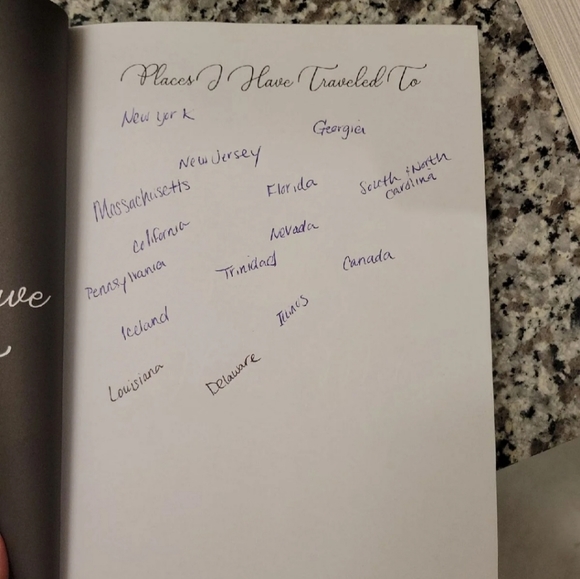 Places I Have Traveled To
New York
Georgia
New Jersey
Massachusetts
Florida
South & North
Carolina
California
Nevada
Pennsylvania
Trinidad
Canada
Iceland
Illinois
Louisiana
Delaware